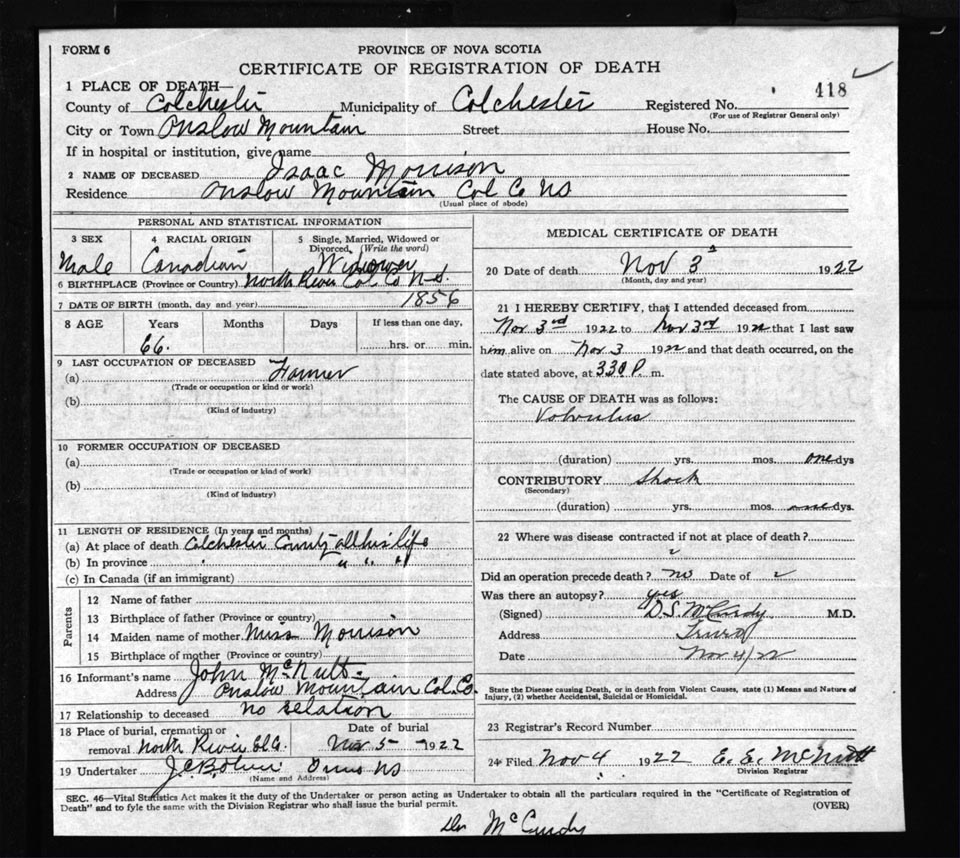 FORM 6
PROVINCE OF NOVA SCOTIA
CERTIFICATE OF REGISTRATION OF DEATH
418
1 PLACE OF DEATH—
County of Colchester Municipality of Colchester Registered No.
(For use of Registrar General only)
City or Town Onslow Mountain Street House No.
If in hospital or institution, give name
2 NAME OF DECEASED Isaac Morrison
Residence Onslow Mountain Col Co NS
(Usual place of abode)
PERSONAL AND STATISTICAL INFORMATION
3 SEX 4 RACIAL ORIGIN 5 Single, Married, Widowed or Divorced, (Write the word)
Male Canadian Widower
6 BIRTHPLACE (Province or Country) North River Col. Co N.S.
7 DATE OF BIRTH (month, day and year) 1856
8 AGE Years Months Days If less than one day,
66. hrs. or min.
9 LAST OCCUPATION OF DECEASED
(a) Farmer
(Trade or occupation or kind or work)
(b)
(Kind of industry)
10 FORMER OCCUPATION OF DECEASED
(a)
(Trade or occupation or kind of work)
(b)
(Kind of industry)
11 LENGTH OF RESIDENCE (In years and months)
(a) At place of death Colchester County all his life
(b) In province " " "
(c) In Canada (if an immigrant)
Parents
12 Name of father
13 Birthplace of father (Province or country)
14 Maiden name of mother Miss Morrison
15 Birthplace of mother (Province or country)
16 Informant's name John McNutt
Address Onslow Mountain Col. Co.
17 Relationship to deceased no relation
18 Place of burial, cremation or removal North River Date of burial
Nov 5 1922
19 Undertaker NS
(Name and Address)
MEDICAL CERTIFICATE OF DEATH
20 Date of death Nov 3 1922
(Month, day and year)
21 I HEREBY CERTIFY, that I attended deceased from
Nov 3rd 1922 to Nov 3rd 1922 that I last saw
him alive on Nov 3 1922 and that death occurred, on the
date stated above, at 330 P. m.
The CAUSE OF DEATH was as follows:
Volvulus
(duration) yrs. mos. one dys
CONTRIBUTORY Shock
(Secondary)
(duration) yrs. mos. one dys.
22 Where was disease contracted if not at place of death?
Did an operation precede death? no Date of
Was there an autopsy? yes
(Signed) D.S. McCurdy M.D.
Address Truro
Date Nov 4/22
State the Disease causing Death, or in death from Violent Causes, state (1) Means and Nature of
Injury, (2) whether Accidental, Suicidal or Homicidal.
23 Registrar's Record Number
24 Filed Nov 4 1922 E. E. McNutt
Division Registrar
SEC. 46—Vital Statistics Act makes it the duty of the Undertaker or person acting as Undertaker to obtain all the particulars required in the "Certificate of Registration of
Death" and to fyle the same with the Division Registrar who shall issue the burial permit.
(OVER)
Dr McCurdy